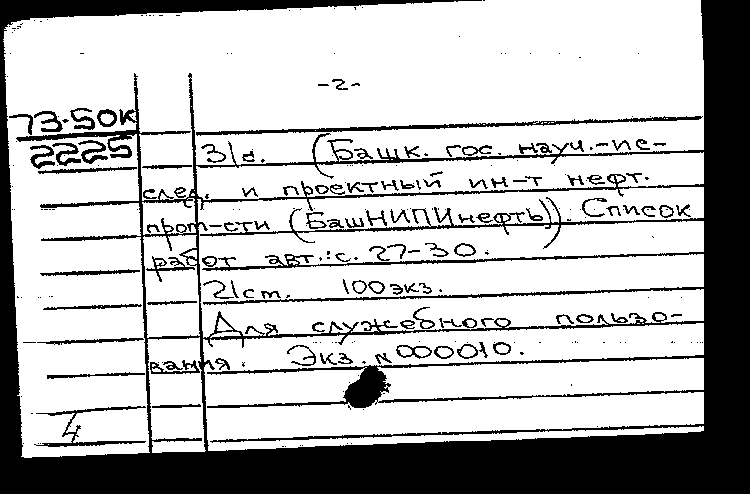 -2-
73-50к
2225
31с. (Башк. гос. науч.-ис-
след. и проектный ин-т нефт.
пром-сти (БашНИПИнефть)). Список
работ авт.: с. 27-30.
21см. 100экз.
Для служебного пользо-
вания. Экз. N000010.
4